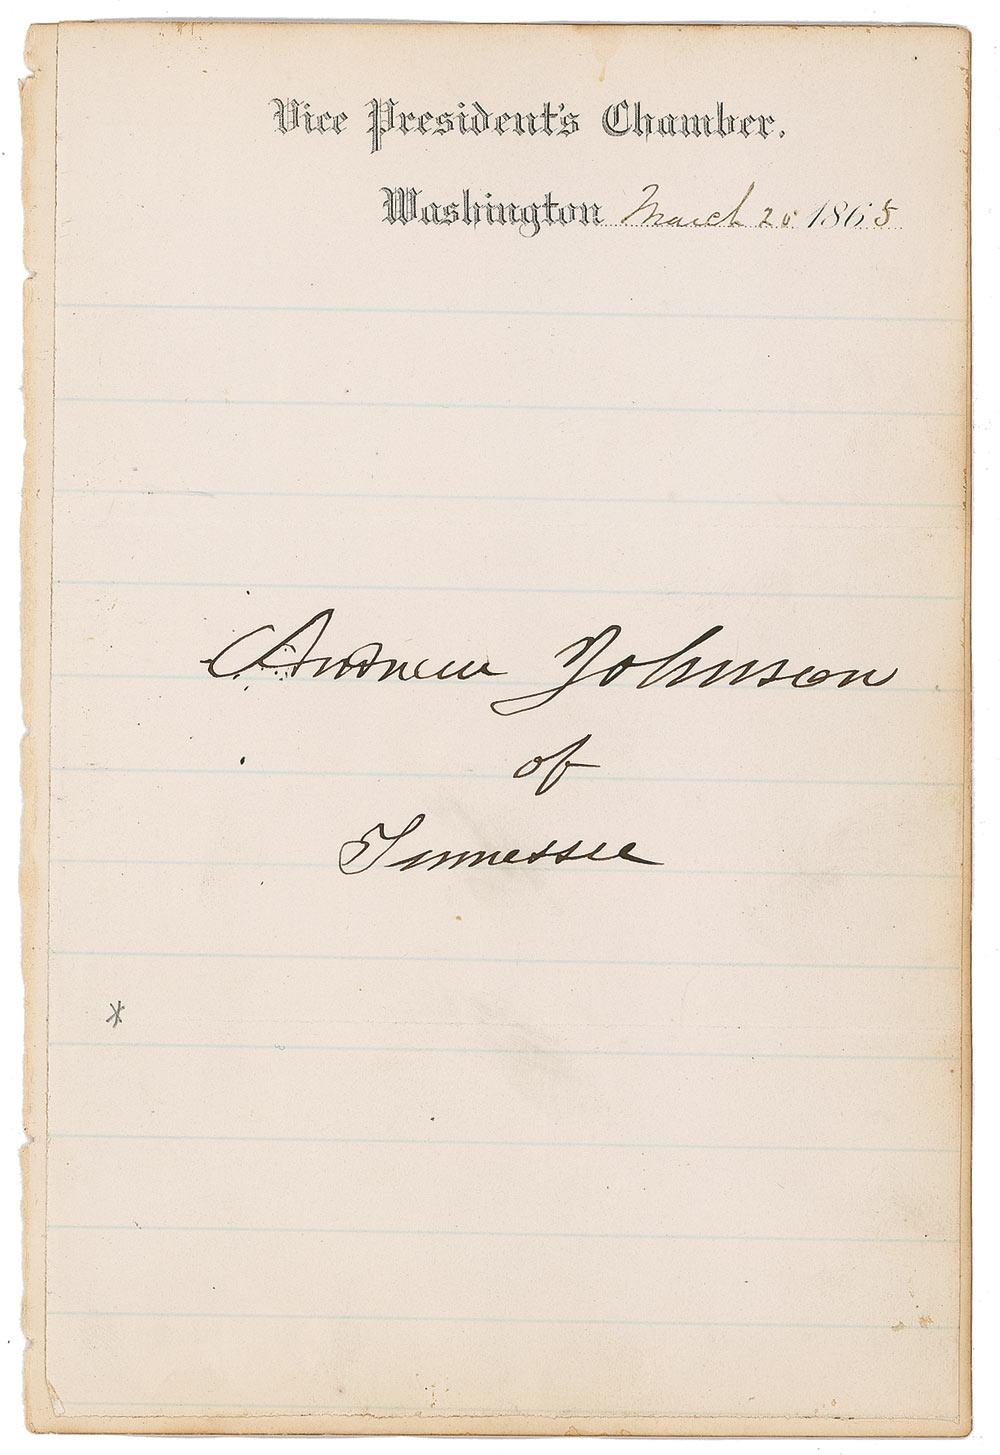 Vice President's Chamber.
Washington March 20 1865
Andrew Johnson
of
Tennessee
*